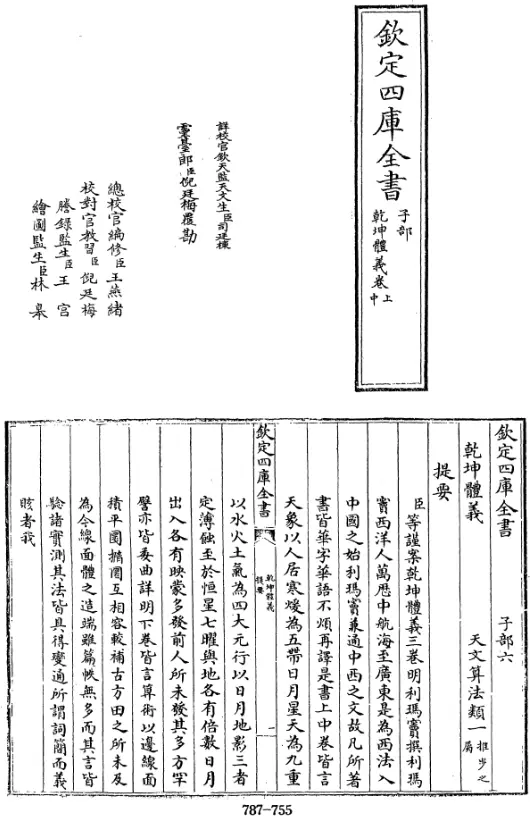 欽定四庫全書
子部
乾坤體義卷上
中
詳校官欽天監天文生臣司廷棟
靈臺郎臣倪廷梅覆勘
總校官編修臣王燕緒
校對官教習臣倪廷梅
謄錄監生臣王宮
繪圖監生臣林皋
欽定四庫全書
子部六
乾坤體義
天文算法類一推步之屬
提要
臣等謹案乾坤體義三卷明利瑪竇撰利瑪
竇西洋人萬歴中航海至廣東是為西法入
中國之始利瑪竇兼通中西之文故凡所著
書皆華字華語不煩再譯是書上中卷皆言
天象以人居寒煖為五帶日月星天為九重
欽定四庫全書
乾坤體義
提要
一
以水火土氣為四大元行以日月地影三者
定薄蝕至於恒星七曜與地各有倍數日月
出入各有映蒙多發前人所未發其多方罕
譬亦皆委曲詳明下卷皆言算術以邊線面
積平圜橢圜互相容較補古方田之所未及
為今線面體之造端雖篇帙無多而其言皆
驗諸實測其法皆具得變通所謂詞簡而義
賅者我
787-755